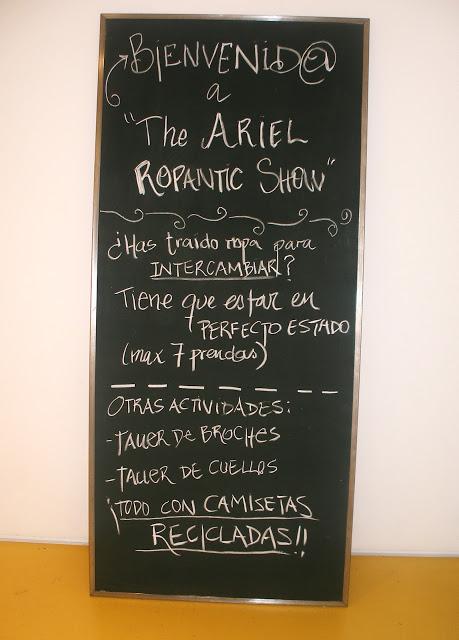 BIENVENID@
a
"The ARIEL
ROPANTIC SHOW"
¿Has traido ropa para
INTERCAMBIAR?
Tiene que estar en
PERFECTO ESTADO
(max 7 prendas)
OTRAS ACTIVIDADES:
-TALLER DE BROCHES
-TALLER DE CUELLOS
¡TODO CON CAMISETAS
RECICLADAS!!